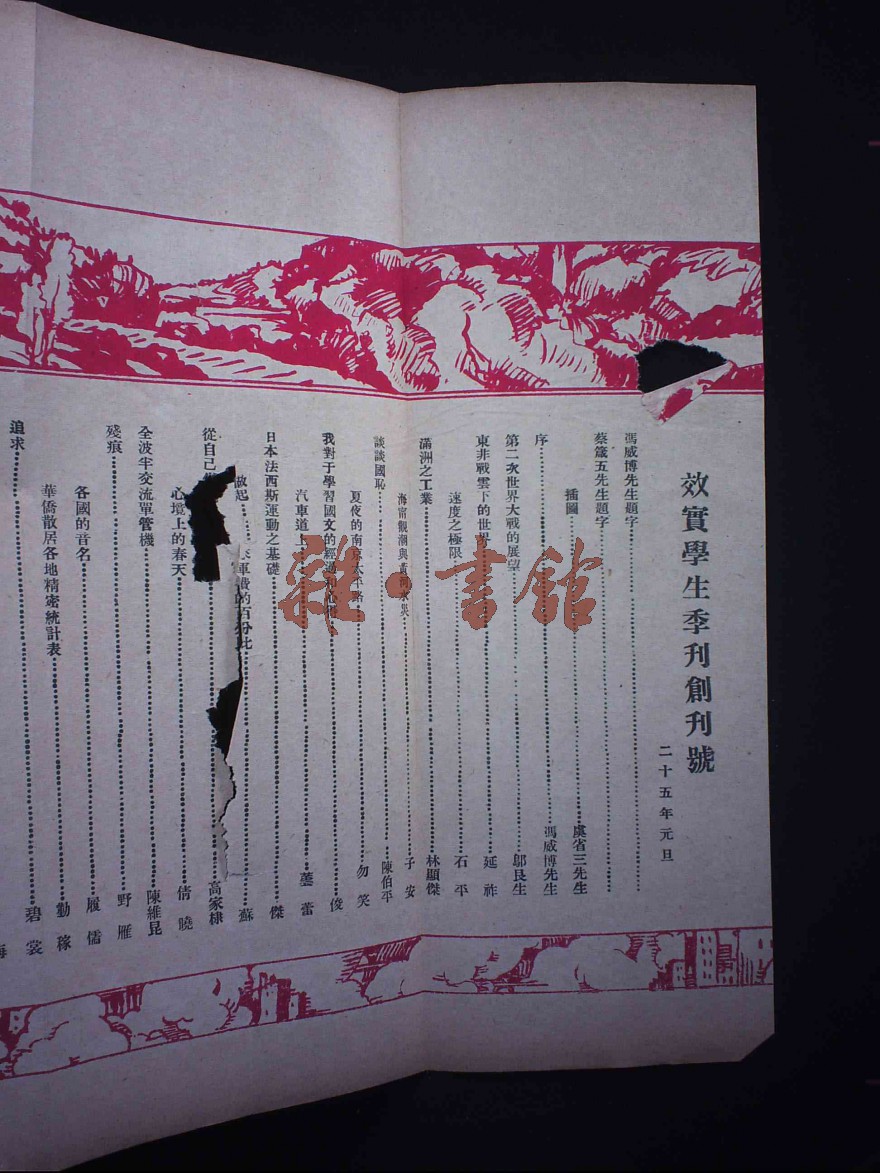 效實學生季刊創刊號
二十五年元旦
馮威博先生題字
蔡箴五先生題字
插圖 虞省三先生
序 馮威博先生
第二次世界大戰的展望 鄔良生
東非戰雲下的世界 延祚
速度之極限 石平
滿洲之工業 林顯傑
海甯觀潮與黃河水災 子安
談談國恥 陳伯平
夏夜的南京太平路 勿笑
我對于學習國文的經過和心得 俊
汽車道上 蕾
日本法西斯運動之基礎 傑
軍費的百分比 蘇
從自己 做起 高家棣
心境上的春天 倩曉
全波半交流單管機 陳維昆
殘痕 野雁
各國的音名 履儒
華僑散居各地精密統計表 勤稼
追求 碧裳
海
雜·書館